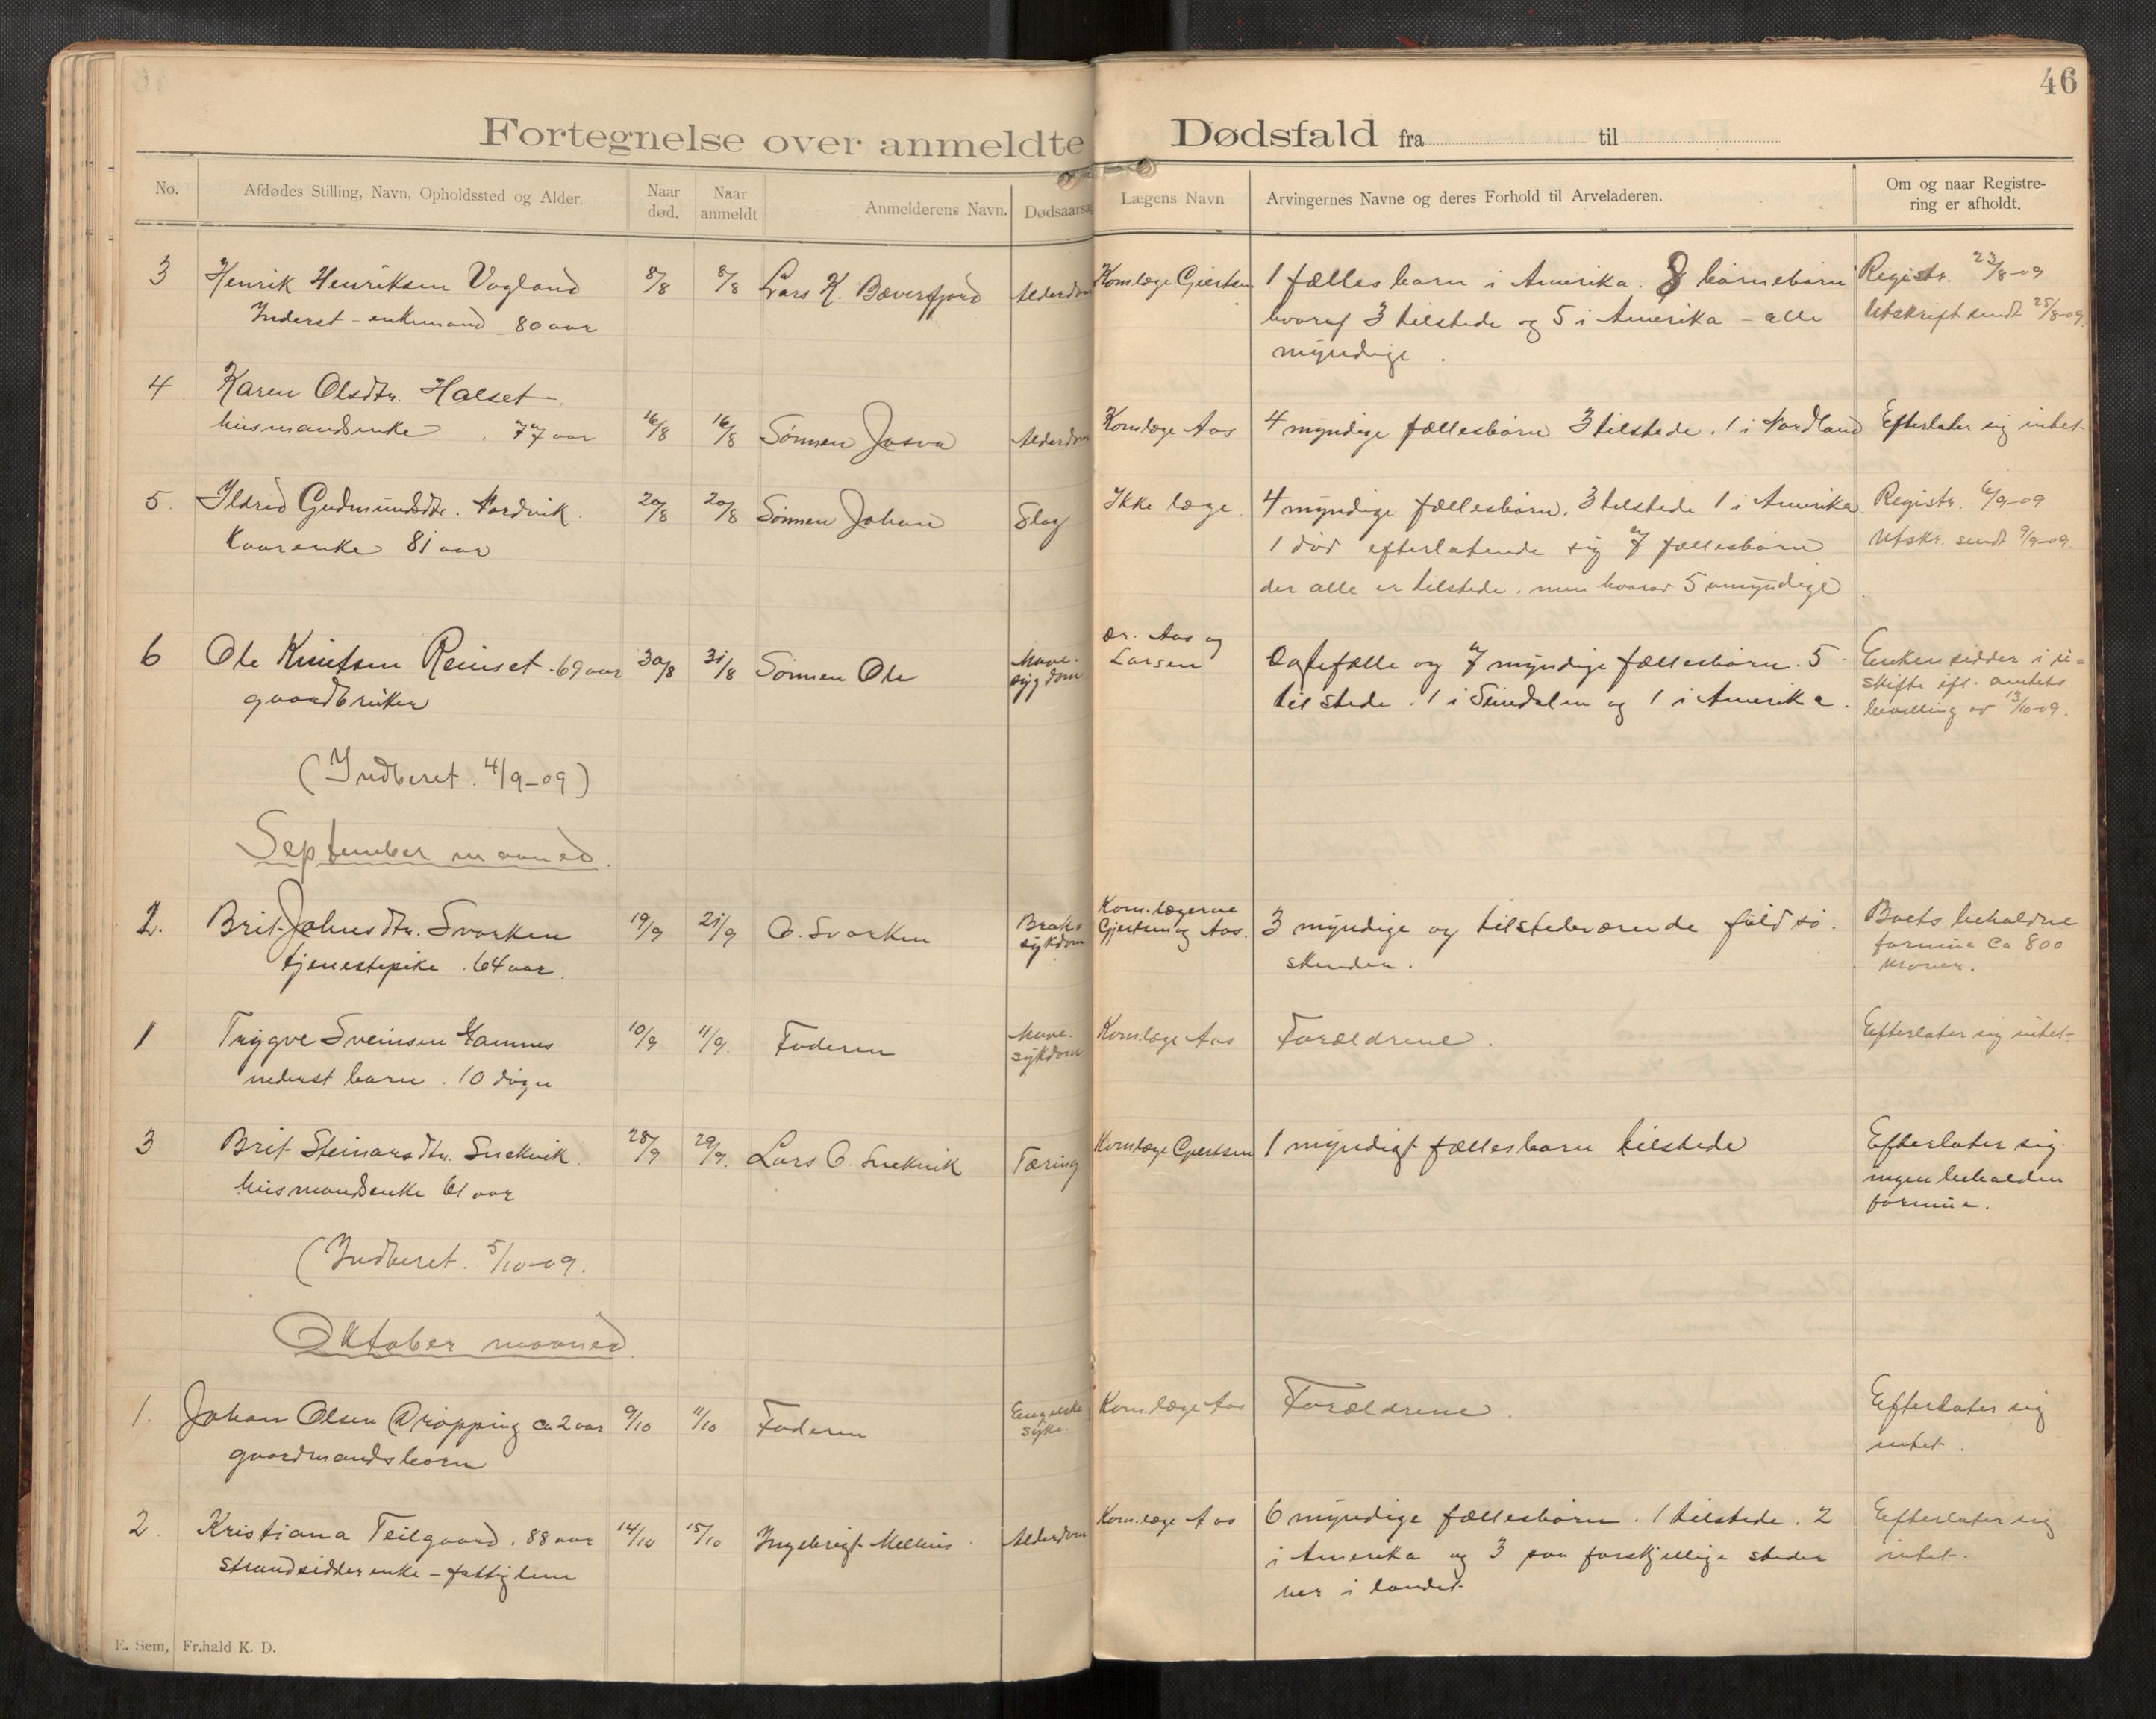 46
Fortegnelse over anmeldte Dødsfald fra til
No. Afdødes Stilling, Navn, Opholdssted og Alder. Naar død. Naar anmeldt Anmelderens Navn. Dødsaarsa Lægens Navn Arvingernes Navne og deres Forhold til Arveladeren. Om og naar Registrering er afholdt.
3 Henrik Henriksen Vagland 8/8 8/8 Lars K. Bæverfjord Alderdom Kom.læge Gjertsen 1 fællesbarn i Amerika. 8 børnebørn Registr. 23/8-09
Inderst-enkemand 80 aar hvoraf 3 tilstede og 5 i Amerika - alle Utskrift sendt 25/8-09.
myndige.
4 Karen Olsdtr. Halset
husmandsenke. 77 aar 16/8 16/8 Sønnen Josva Alderdom Kom.læge Aas 4 myndige fællesbørn 3 tilstede. 1 i Nordland Efterlater sig intet
5. Ildrid Gudmundsdtr. Nordvik. 20/8 20/8 Sønnen Johan Slag Ikke læge 4 myndige fællesbørn. 3 tilstede 1 i Amerika Registr. 6/9-09
Kaarenke 81 aar 1 død efterlatende sig 7 fællesbørn Utskr. sendt 9/9-09.
der alle er tilstede. men hvorav 5 umyndige
6 Ole Knutsen Reinset. 69 aar 30/8 31/8 Sønnen Ole Mave- sygdom Dr. Aas og Larsen Egtefælle og 7 myndige fællesbørn. 5 Enken sidder i u-
gaardbruker tilstede. 1 i Sundalen og 1 i Amerika. skifte efl. amtets
bevilling av 13/10-09.
(Indberet. 4/9-09)
September maaned.
2. Brit Johnsdtr. Svorken 19/9 21/9 O. Svorken Braks sykdom Kom.lægerne Gjertsen og Aas. 3 myndige og tilstedeværende fuldsø- Boets beholdne
tjenestepike. 64 aar. skenden. formue ca 800
kroner.
1 Trygve Sveinsen Hamnes 10/9 11/9. Faderen Mave- sykdom Kom.læge Aas Forældrene. Efterlater sig intet
inderst barn. 10 døgn
3 Brit Steinarsdtr. Snekvik. 28/9 29/9. Lars O. Snekvik Tæring Kom.læge Gjertsen 1 myndigt fællesbarn tilstede Efterlater sig
husmandsenke 61 aar ingen beholden
formue.
(Indberet. 5/10-09.
Oktober maaned.
1. Johan Olsen Drøpping ca 2 aar 9/10 11/10 Faderen Engelske syke. Kom.læge Aas Forældrene. Efterlater sig
gaardmandsbarn intet.
2. Kristiana Teilgaard. 88 aar 14/10 15/10 Ingebrigt Melhus. Alderdom Kom.læge Aas 6 myndige fællesbørn. 1 tilstede. 2 Efterlater sig
strandsidderenke - fattiglem i Amerika og 3 paa forskjellige steder intet.
her i landet
E. Sem, Fr.hald K. D.